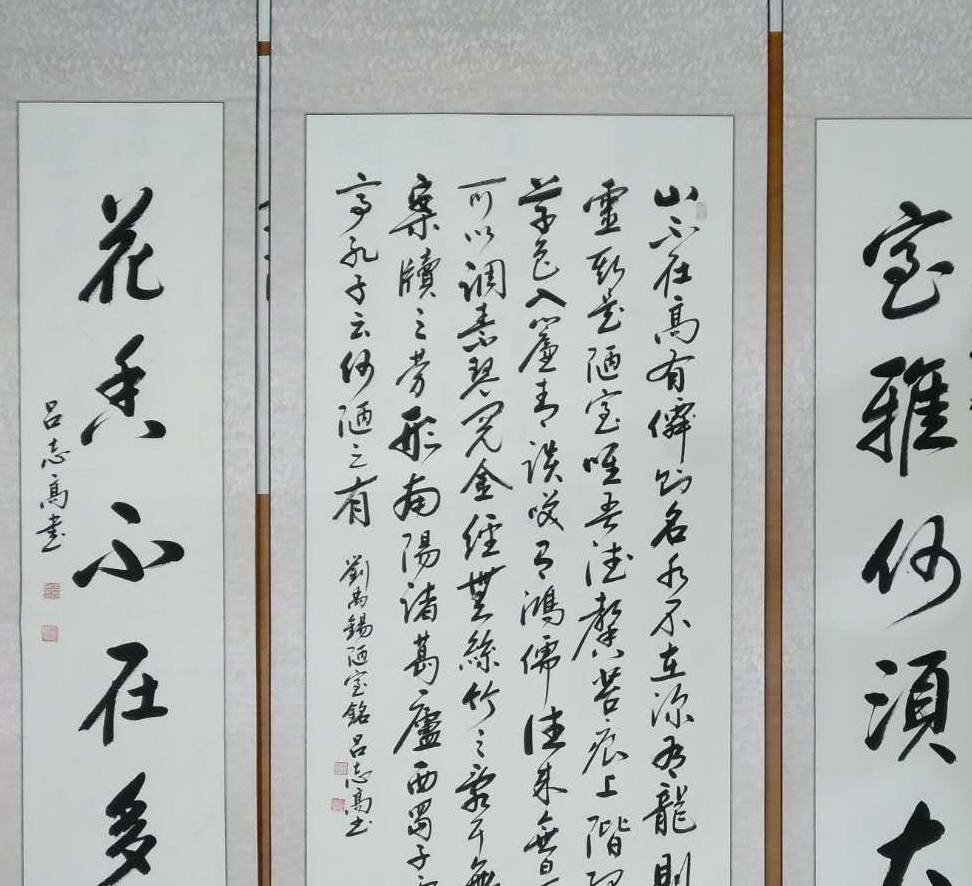 室雅何須大
山不在高有僊則名水不在深有龍則
靈斯是陋室唯吾德馨苔痕上階
草色入簾青談笑有鴻儒往來無
可以調素琴閱金經無絲竹之亂耳無
案牘之勞形南陽諸葛廬西蜀子
亭孔子云何陋之有
劉禹錫陋室銘吕志高書
花香不在多
吕志高書